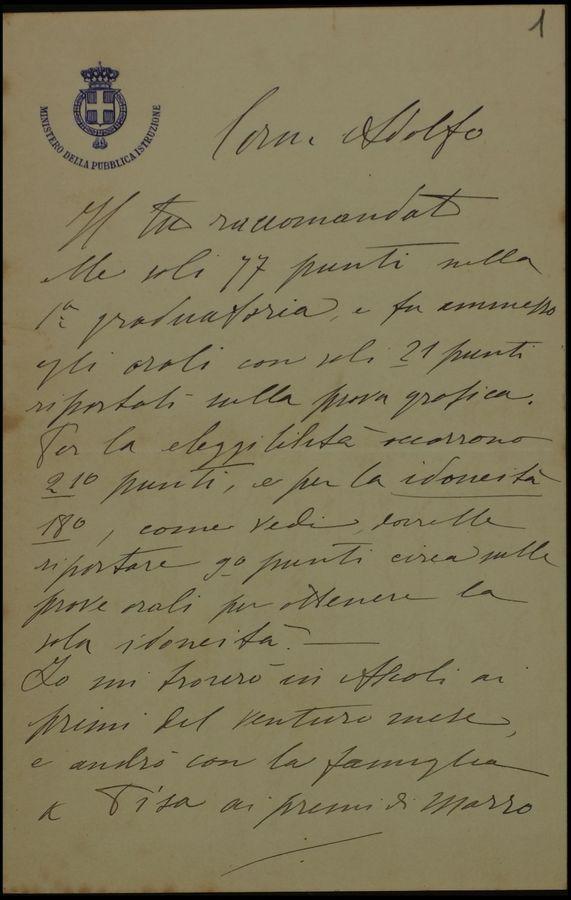 1
MINISTERO DELLA PUBBLICA ISTRUZIONE
Adolfo
Il tuo raccomandat
soli 77 punti nella
1a graduatoria, e fu ammesso
agli orali con soli 21 punti
riportati nella prova grafica.
Per la eleggibilità occorrono
210 punti, e per la idoneità
180, come vedi, dovrebbe
riportare 90 punti circa nelle
prove orali per ottenere la
sola idoneità. —
Io mi troverò in Ascoli ai
primi del venturo mese,
e andrò con la famiglia
a Pisa ai primi di Marzo